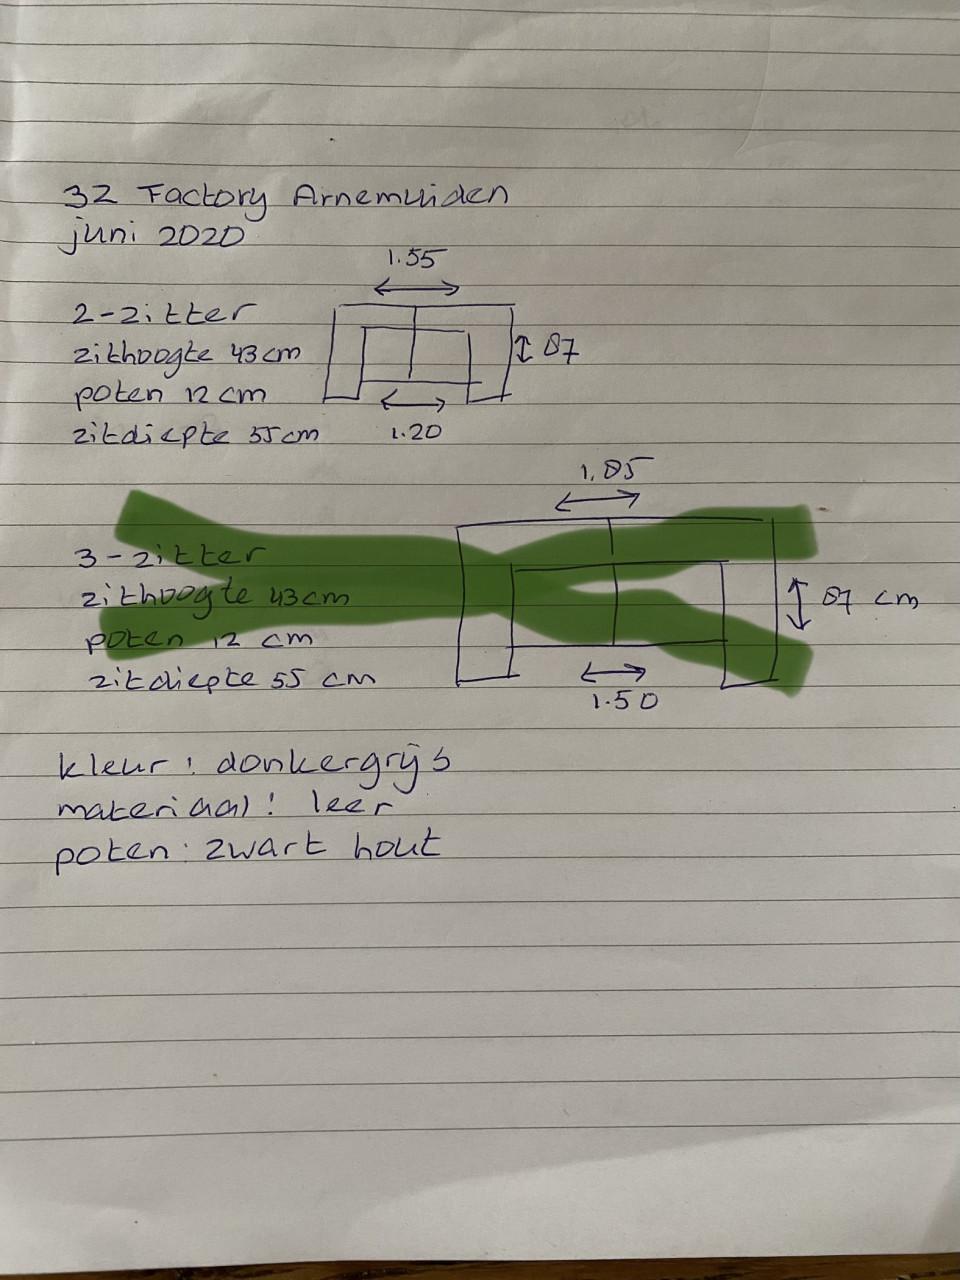 3Z Factory Arnemuiden
juni 2020
1.55
2-zitter
zithoogte 43 cm
87
poten 12 cm
zitdiepte 55 cm
1.20
1.85
3-zitter
zithoogte 43 cm
87 cm
poten 12 cm
zitdiepte 55 cm
1.50
kleur: donkergrijs
materiaal: leer
poten: zwart hout